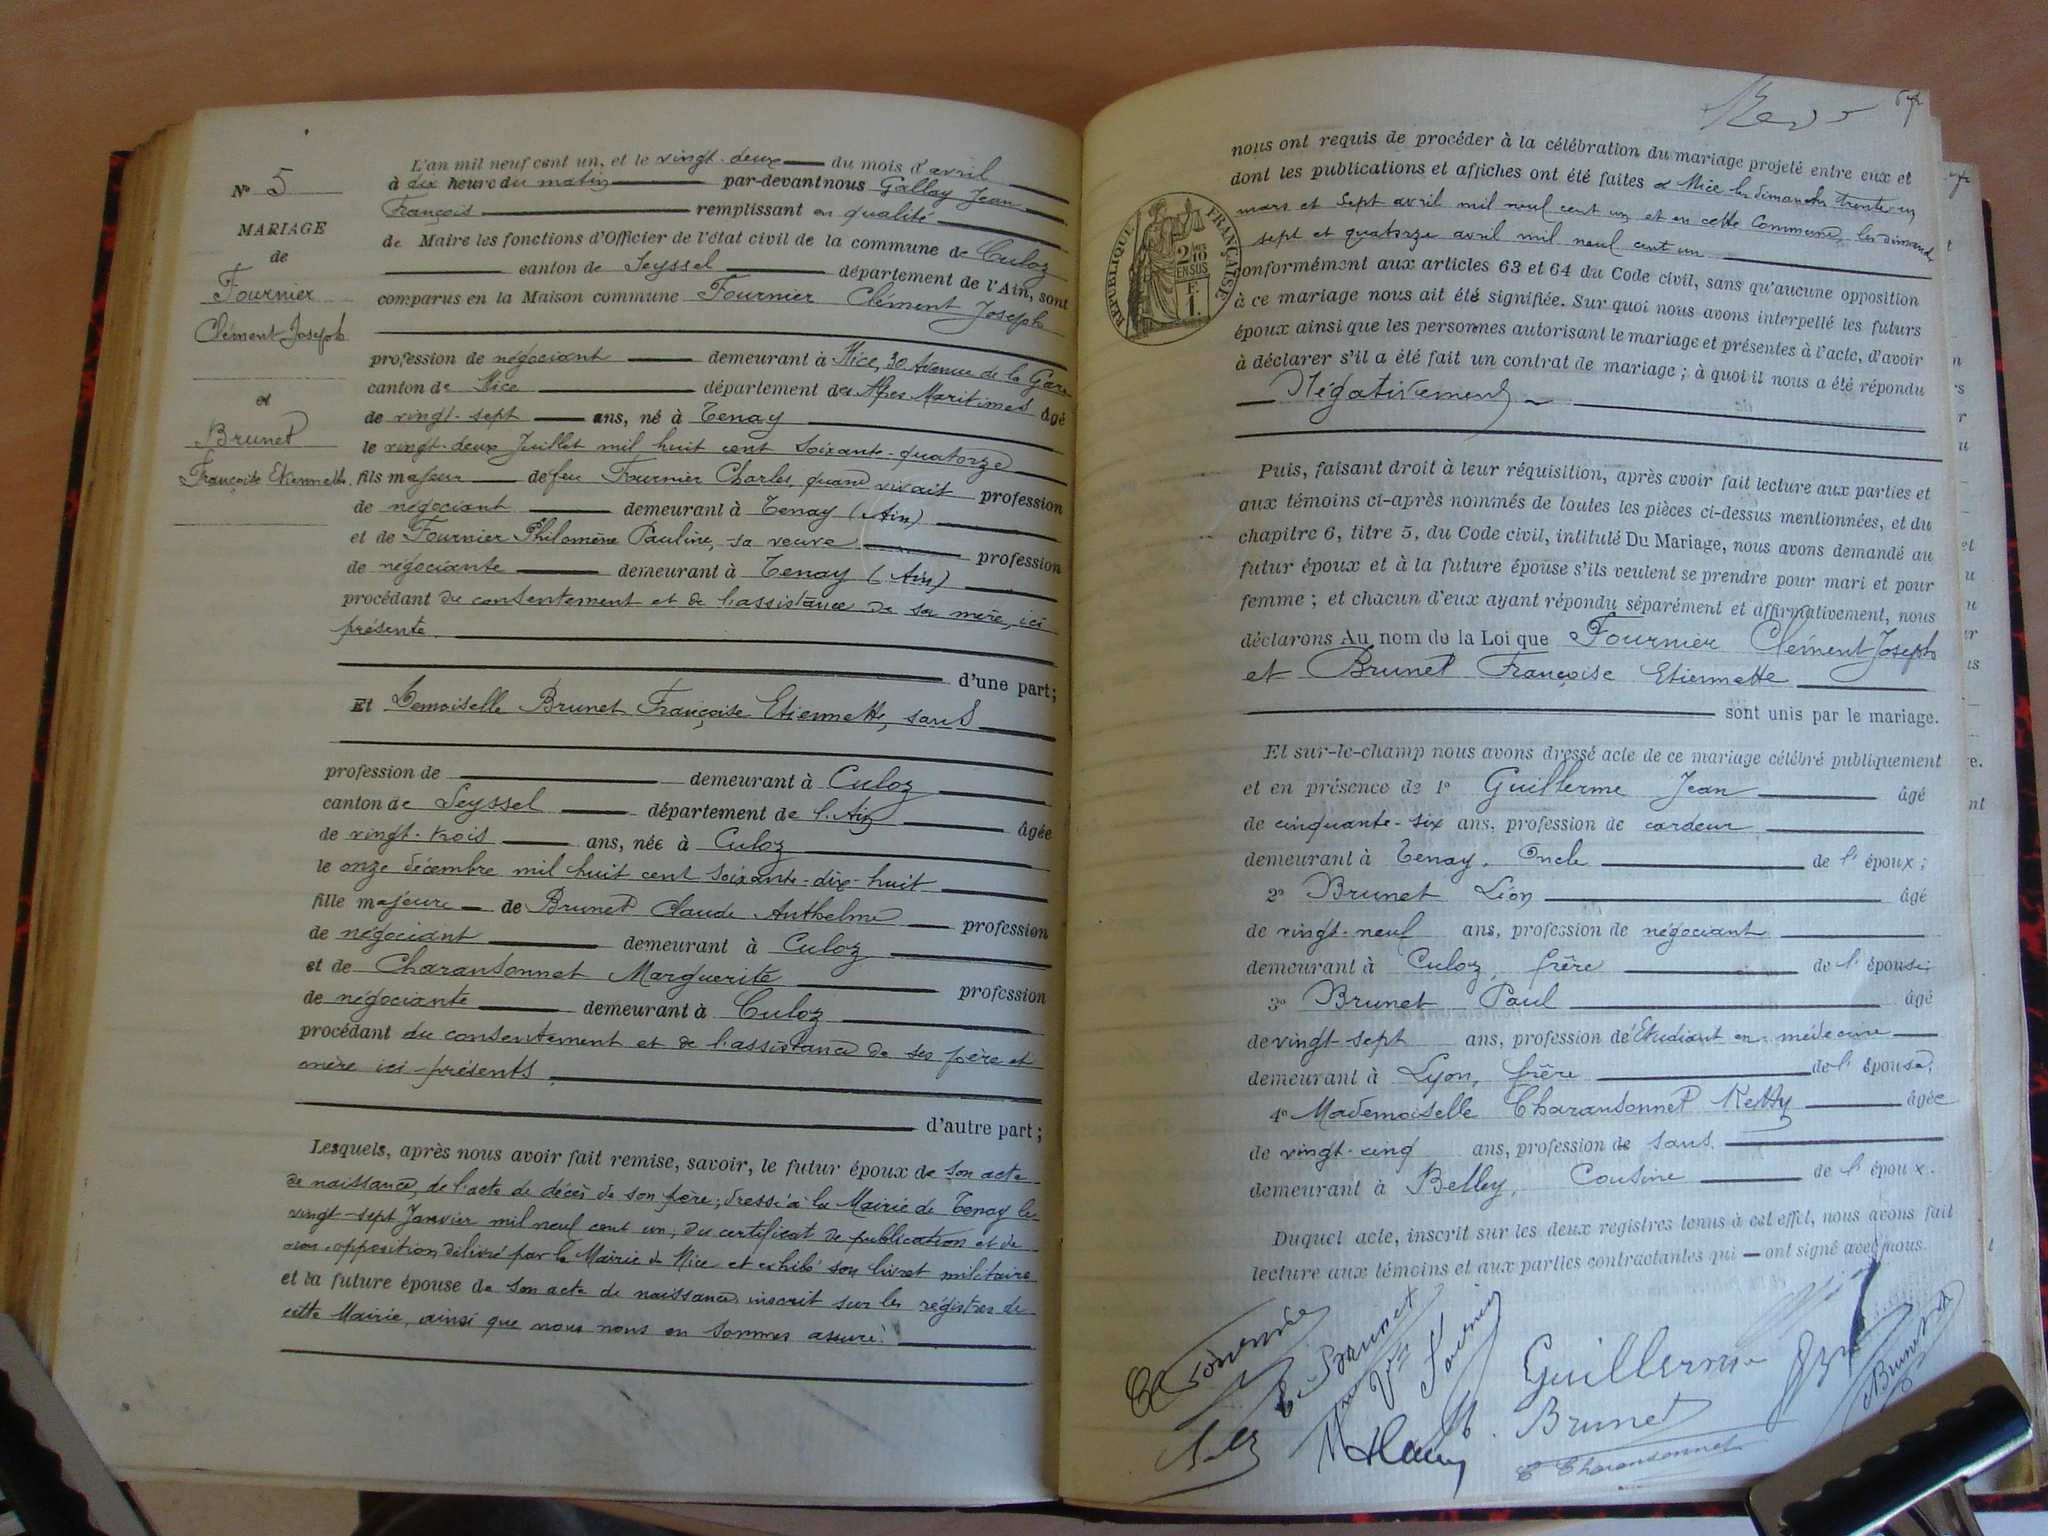 N° 5
MARIAGE
de
Fournier
Clément Joseph
et
Brunet
Françoise Etiennette
L'an mil neuf cent un, et le vingt-deux du mois d'avril
à dix heure du matin par-devant nous Gallay Jean
François remplissant en qualité
de Maire les fonctions d'Officier de l'état civil de la commune de Culoz
canton de Seyssel département de l'Ain, sont
comparus en la Maison commune Fournier Clément Joseph
profession de négociant demeurant à Nice, 30 Avenue de la Gare
canton de Nice département des Alpes Maritimes âgé
de vingt-sept ans, né à Tenay
le vingt-deux Juillet mil huit cent soixante-quatorze
fils majeur de feu Fournier Charles, quand vivait profession
de négociant demeurant à Tenay (Ain)
et de Fournier Philomène Pauline, sa veuve profession
de négociante demeurant à Tenay (Ain)
procédant du consentement et de l'assistance de sa mère, ici
présente.
d'une part ;
Et Demoiselle Brunet Françoise Etiennette, sans
profession de demeurant à Culoz
canton de Seyssel département de l'Ain âgée
de vingt-trois ans, née à Culoz
le onze décembre mil huit cent soixante-dix-huit
fille majeure de Brunet Claude Anthelme profession
de négociant demeurant à Culoz
et de Charansonnet Marguerite profession
de négociante demeurant à Culoz
procédant du consentement et de l'assistance de ses père et
mère ici-présents
d'autre part ;
Lesquels, après nous avoir fait remise, savoir, le futur époux de son acte
de naissance, de l'acte de décès de son père, dressé à la Mairie de Tenay le
vingt-sept Janvier mil neuf cent un, du certificat de publication et de
non-opposition délivré par la Mairie de Nice et exhibé son livret militaire
et la future épouse de son acte de naissance inscrit sur les régistres de
cette Mairie, ainsi que nous nous en sommes assuré.
nous ont requis de procéder à la célébration du mariage projeté entre eux et
dont les publications et affiches ont été faites à Nice les dimanches trente-un
mars et sept avril mil neuf cent un et en cette Commune, les dimanches
sept et quatorze avril mil neuf cent un
RÉPUBLIQUE FRANÇAISE
2/10
EN SUS
F.
1.
conformément aux articles 63 et 64 du Code civil, sans qu'aucune opposition
à ce mariage nous ait été signifiée. Sur quoi nous avons interpellé les futurs
époux ainsi que les personnes autorisant le mariage et présentes à l'acte, d'avoir
à déclarer s'il a été fait un contrat de mariage ; à quoi il nous a été répondu
Négativement
Puis, faisant droit à leur réquisition, après avoir fait lecture aux parties et
aux témoins ci-après nommés de toutes les pièces ci-dessus mentionnées, et du
chapitre 6, titre 5, du Code civil, intitulé Du Mariage, nous avons demandé au
futur époux et à la future épouse s'ils veulent se prendre pour mari et pour
femme ; et chacun d'eux ayant répondu séparément et affirmativement, nous
déclarons Au nom de la Loi que Fournier Clément Joseph
et Brunet Françoise Etiennette
sont unis par le mariage.
Et sur-le-champ nous avons dressé acte de ce mariage célébré publiquement
et en présence de 1° Guillerme Jean âgé
de cinquante-six ans, profession de cardeur
demeurant à Tenay. Oncle de l'époux ;
2° Brunet Léon âgé
de vingt-neuf ans, profession de négociant
demeurant à Culoz, frère de l'épouse
3° Brunet Paul âgé
de vingt-sept ans, profession de Etudiant en médecine
demeurant à Lyon, frère de l'épouse,
4° Mademoiselle Charansonnet Ketty âgée
de vingt-cinq ans, profession de sans.
demeurant à Belley, Cousine de l'époux.
Duquel acte, inscrit sur les deux registres tenus à cet effet, nous avons fait
lecture aux témoins et aux parties contractantes qui ont signé avec nous.
Brunet
Guillerme
Brunet
Brunet
Charansonnet